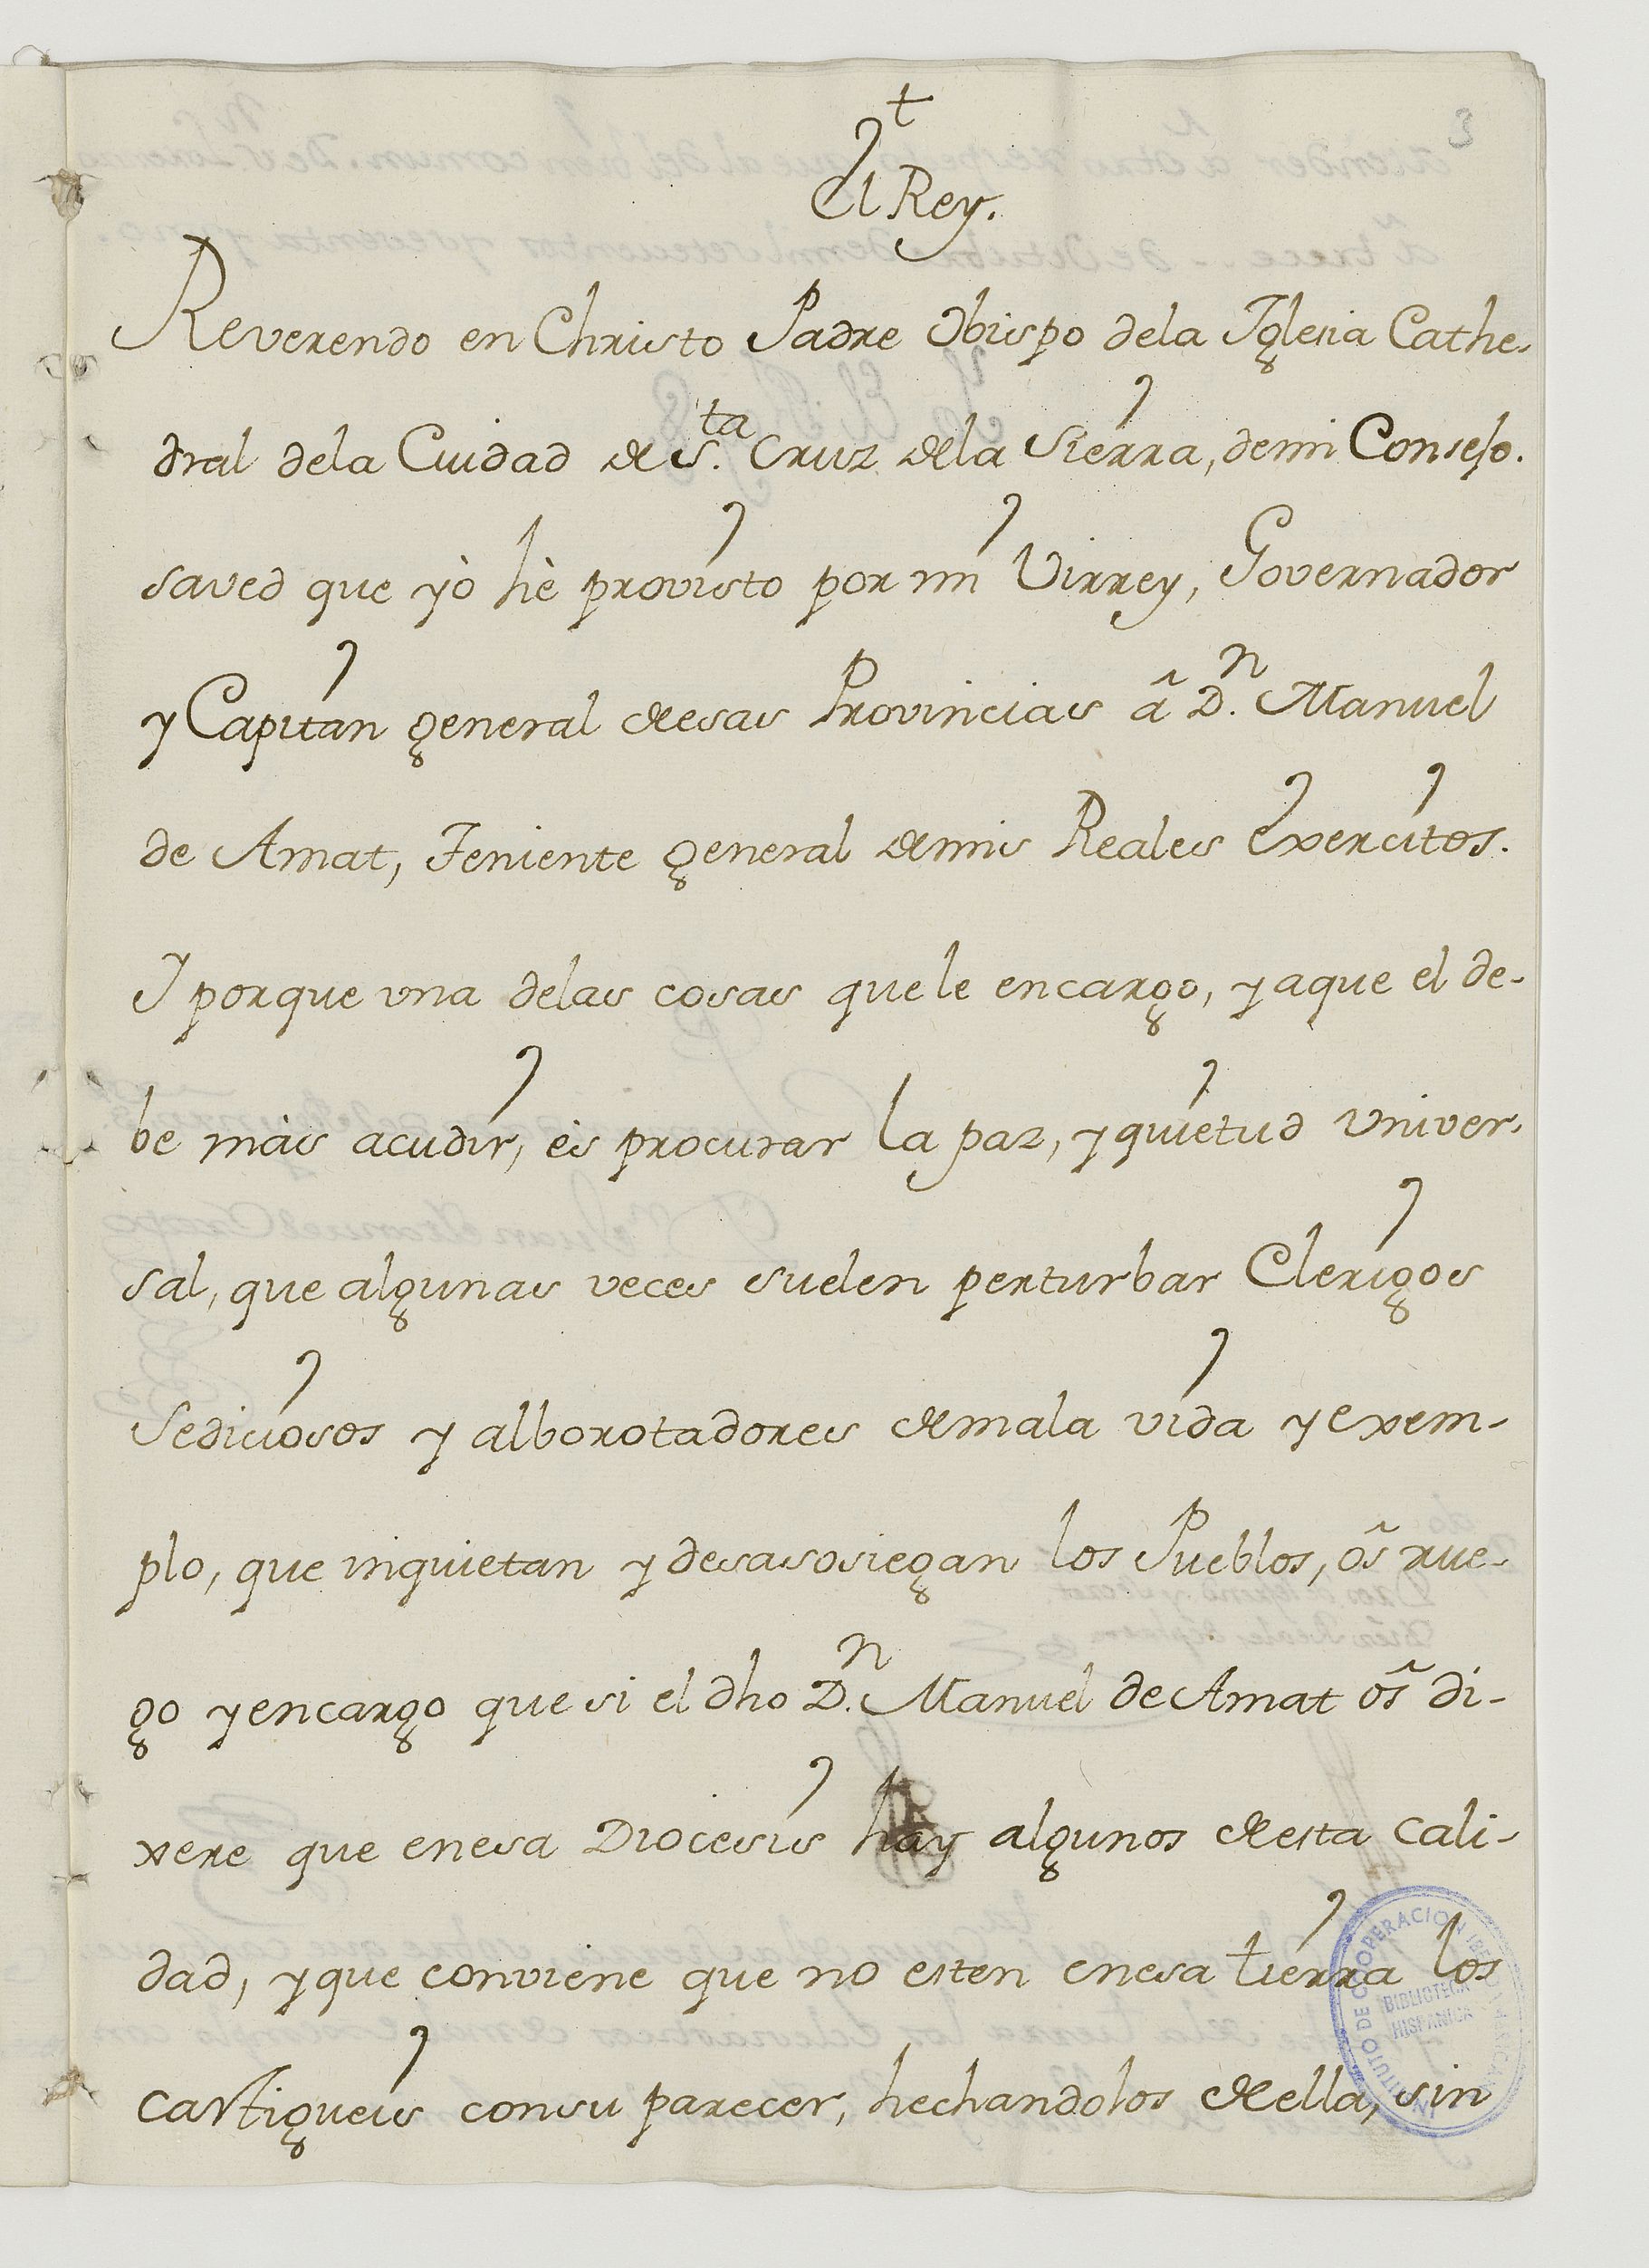 3
†
El Rey.
Reverendo en Christo Padre Obispo dela Iglesia Cathe-
dral dela Cuidad de S.ta Cruz dela Sierra, demi Consejo.
saved que yò hè provisto por mi Virrey, Governador
y Capitan general deesas Provincias â D.n Manuel
de Amat, Teniente general demis Reales Exercitos.
Y porque vna delas cosas quele encargo, y aque el de-
be màs acudir, ès procurar la paz, y quietud vniver-
sal, que algunas veces suelen perturbar Clerigos
Sediciosos y alborotadores demala vida y exem-
plo, que inquietan y desasosiegan los Pueblos, ôs rue-
go y encargo que si el dho D.n Manuel de Amat ôs di-
xere que enesa Diocesis hay algunos deesta cali-
dad, y que conviene que no esten enesa tierra los
castigueis consu parecer, hechandolos deella, sin
INSTITUTO DE COOPERACION IBEROAMERICANA
BIBLIOTECA
HISPANICA